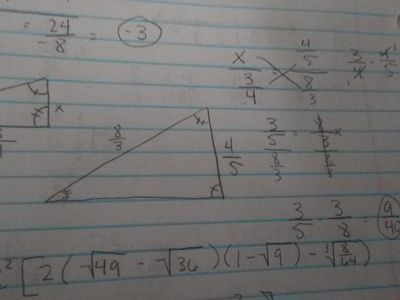 = 24/-8 = -3
x / 3/4
4/5 / 8/3
3/4 · 4/5
x
8/3
4/5
3/5 / 8/3 =
x
3/5 · 3/8 = 9/40
2 [ 2 ( √49 - √36 ) ( 1 - √9 ) - ∛8/64 )